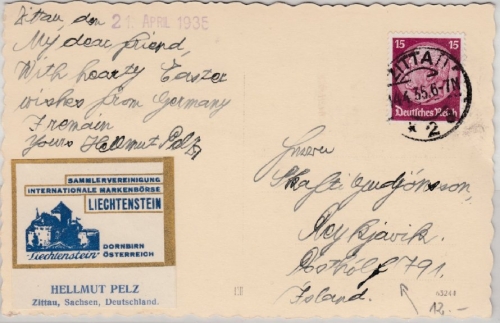 Zittau, den 21. APRIL 1935
My dear friend,
With hearty Easter
wishes from Germany
I remain
Yours Hellmut Pelz
SAMMLERVEREINIGUNG
INTERNATIONALE MARKENBÖRSE
LIECHTENSTEIN
Liechtenstein
DORNBIRN
ÖSTERREICH
HELLMUT PELZ
Zittau, Sachsen, Deutschland.
15 15
Deutsches Reich
ZITTAU
35.6-7N
* 2
Herrn
Gudjónsson,
Reykjavik.
Posthólf 791.
Island.
12.-